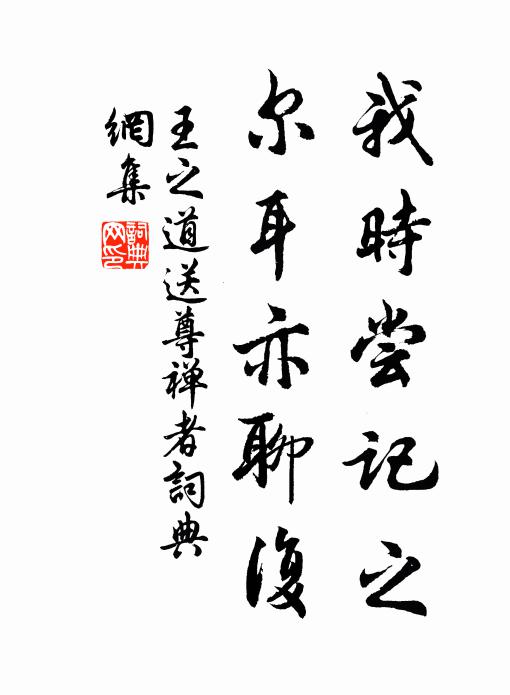 我時尝记之
尔耳亦聊復
王之道送尊禅者詞典
網集
詞典
网印